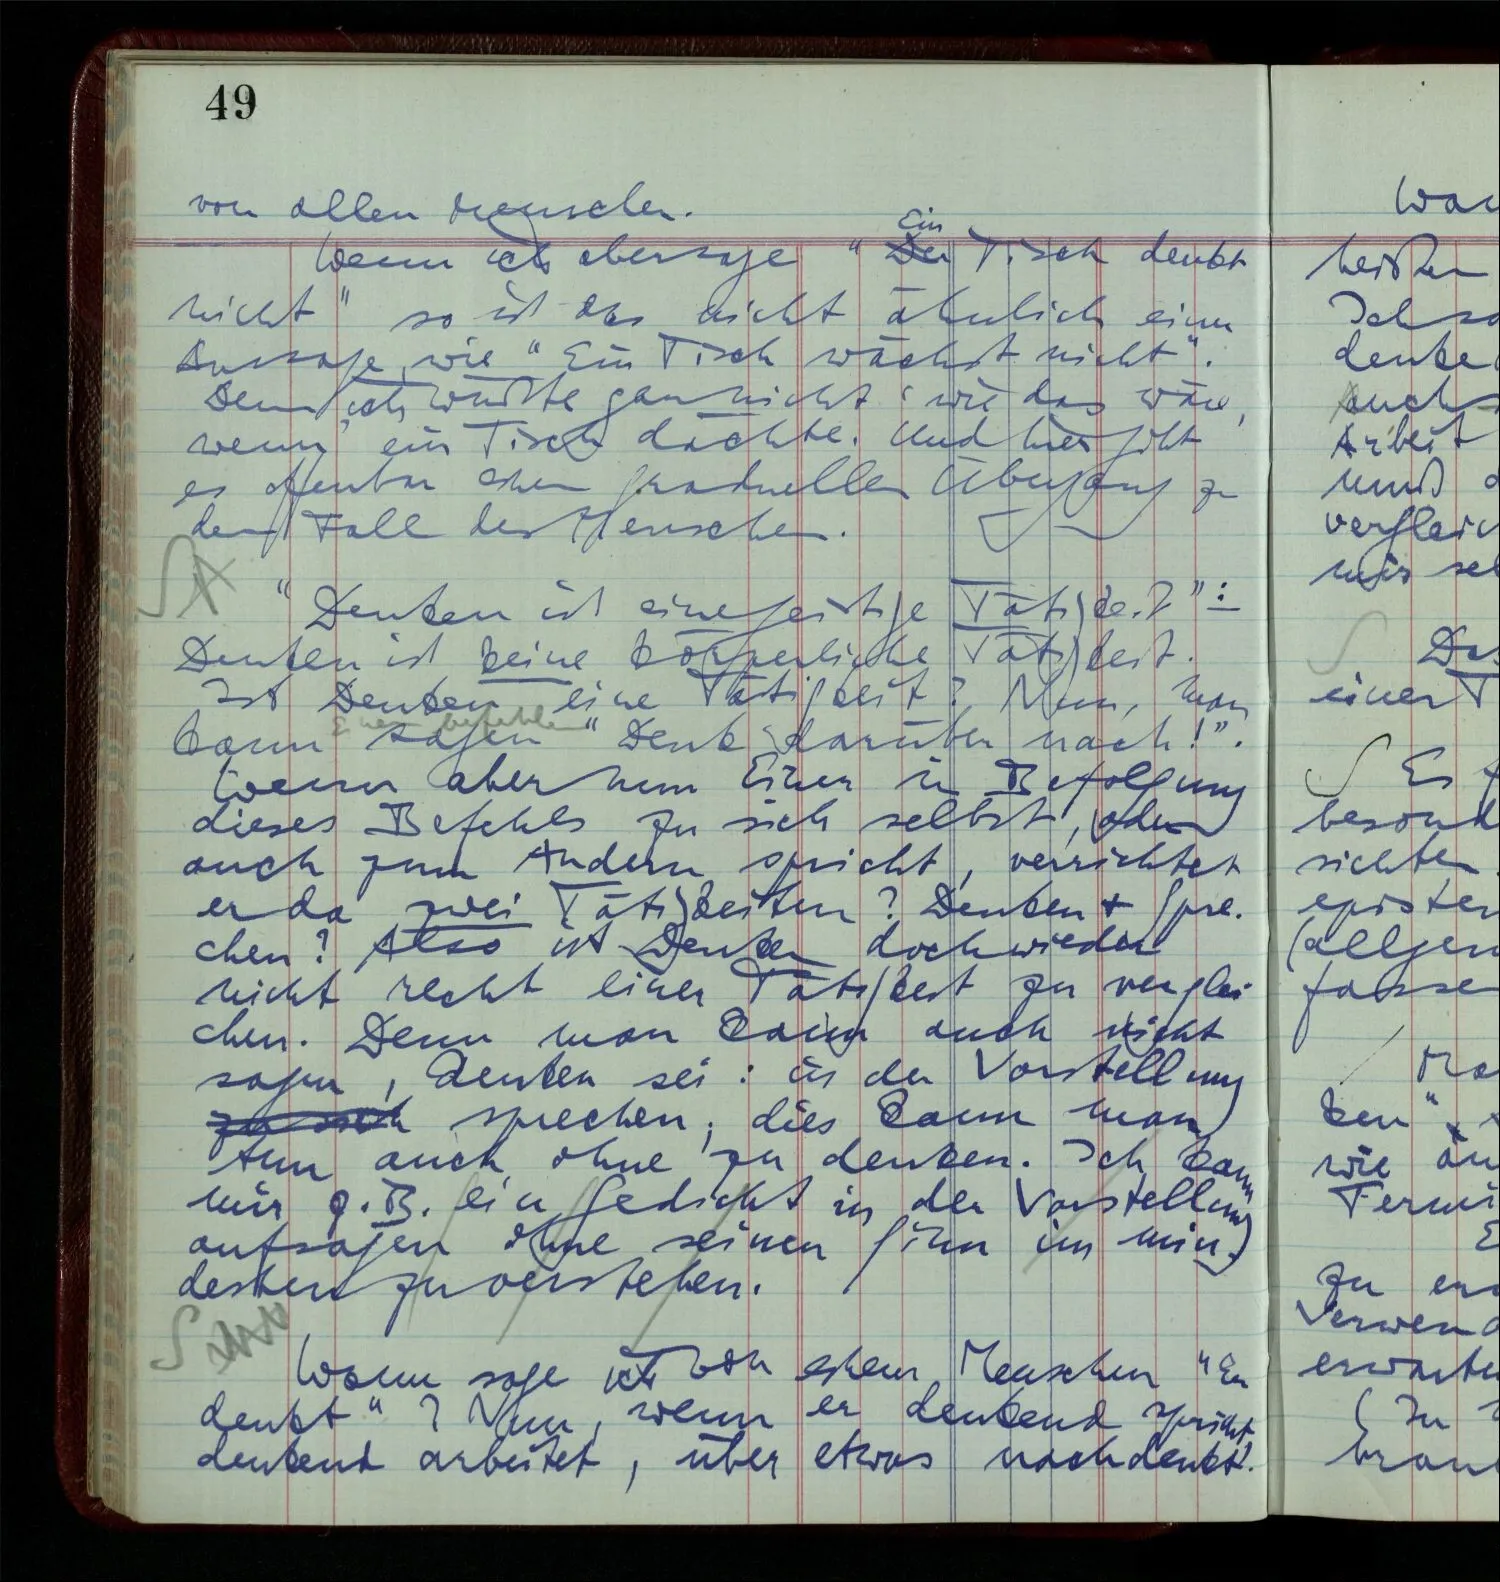 49
von allen Menschen.
Wenn ich aber sage " Ein Der Tisch denkt
nicht" so ist das nicht ähnlich einer
Aussage wie "Ein Tisch wächst nicht".
Denn ich wüßte gar nicht 'wie das wäre,
wenn' ein Tisch dächte. Und hier gibt
es offenbar einen graduellen Übergang zu
dem Fall des Menschen.
S
"Denken ist eine geistige Tätigkeit" :
Denken ist keine körperliche Tätigkeit.
Ist Denken eine Tätigkeit? Nun, man
Einem befehlen
kann sagen "Denk darüber nach!".
Wenn aber nun Einer in Befolgung
dieses Befehls zu sich selbst, oder
auch zum Andern spricht, verrichtet
er da zwei Tätigkeiten? Denken + Spre-
chen? Also ist Denken doch wieder
nicht recht einer Tätigkeit zu verglei-
chen. Denn man kann auch nicht
sagen, Denken sei: in der Vorstellung
zu sich sprechen; dies kann man
tun auch ohne zu denken. Ich kann
mir z.B. ein Gedicht in der Vorstellung
aufsagen ohne seinen Sinn im min-
desten zu verstehen.
S
Wann sage ich von einem Menschen "Er
denkt"? Nun, wenn er denkend spricht
denkend arbeitet, über etwas nachdenkt.
War
heißen
Ich sa
denke
Auch
Arbeit
muß d
vergleic
mir sel
S Das
einer T
S Es f
besond
sichten
episten
(allgem
fasse
Ma
ken"
wie
Termi
E
zu er
Verwend
erwarte
(In
brau